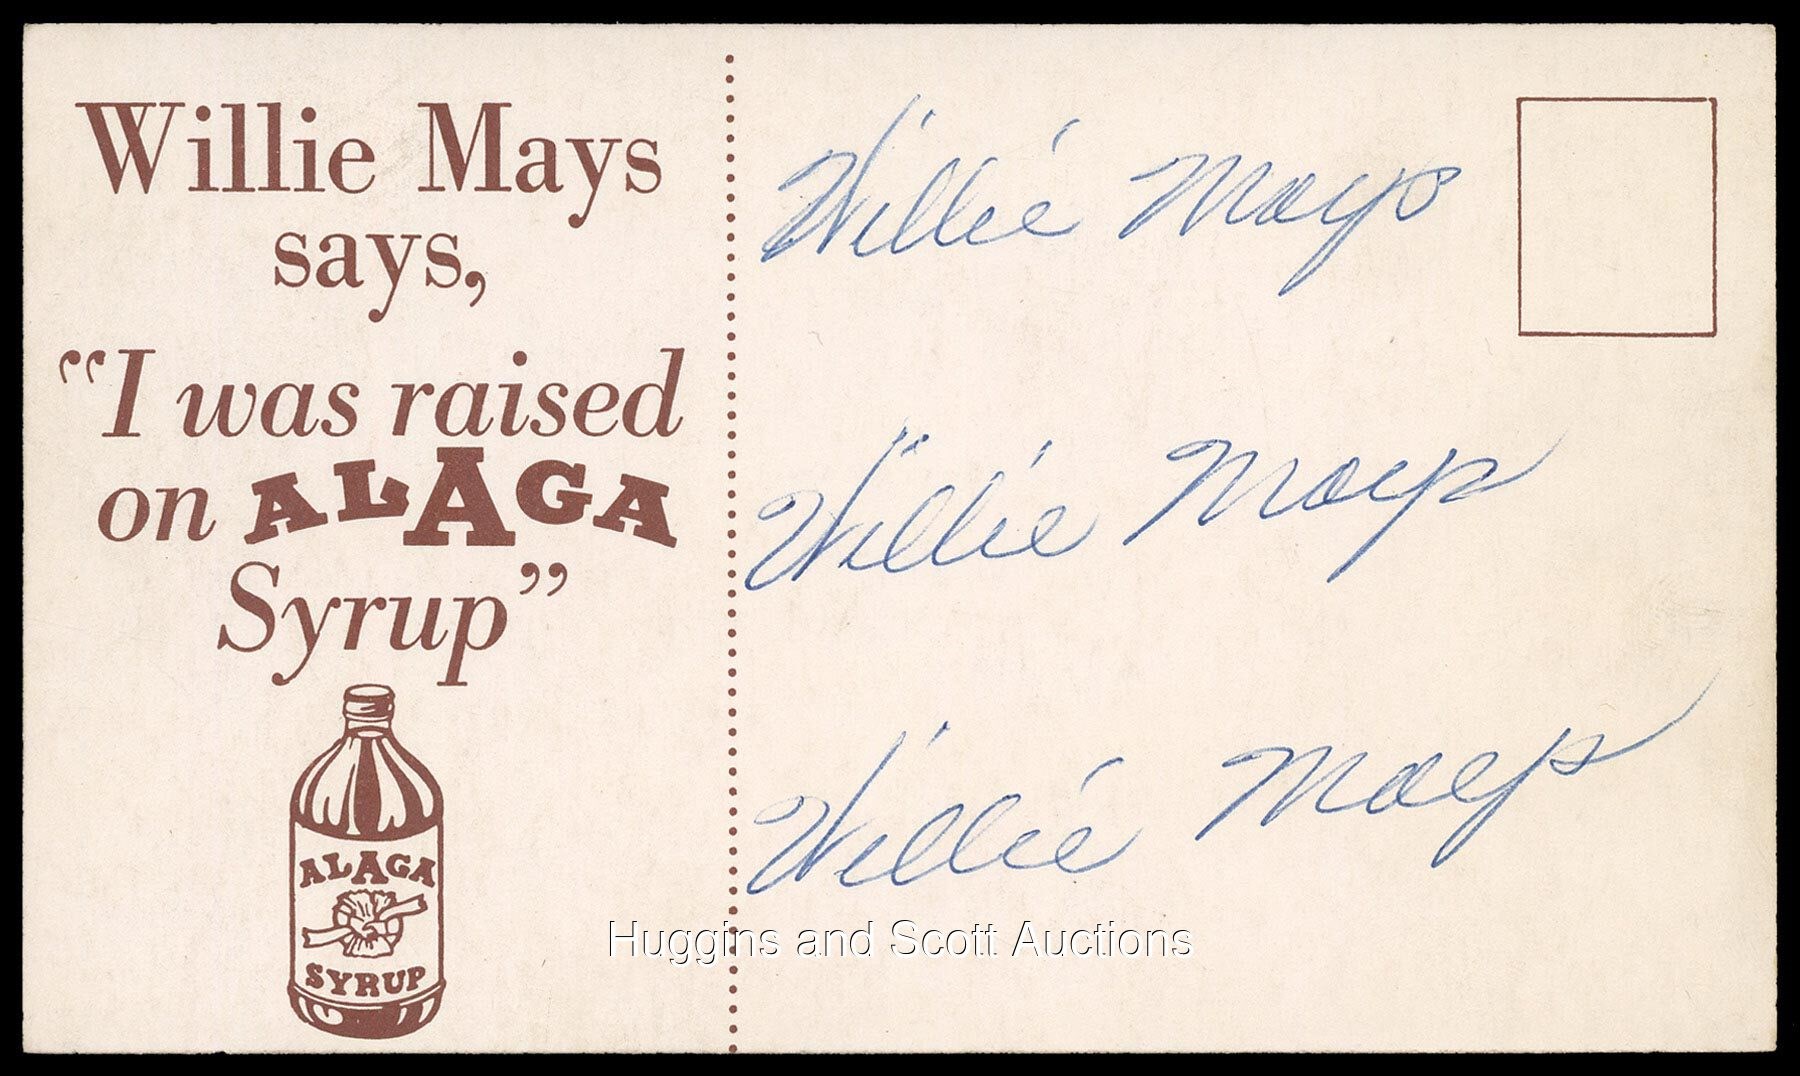 Willie Mays
says,
“I was raised
on ALAGA
Syrup”
ALAGA
SYRUP
Willie Mays
Willie Mays
Willie Mays
Huggins and Scott Auctions